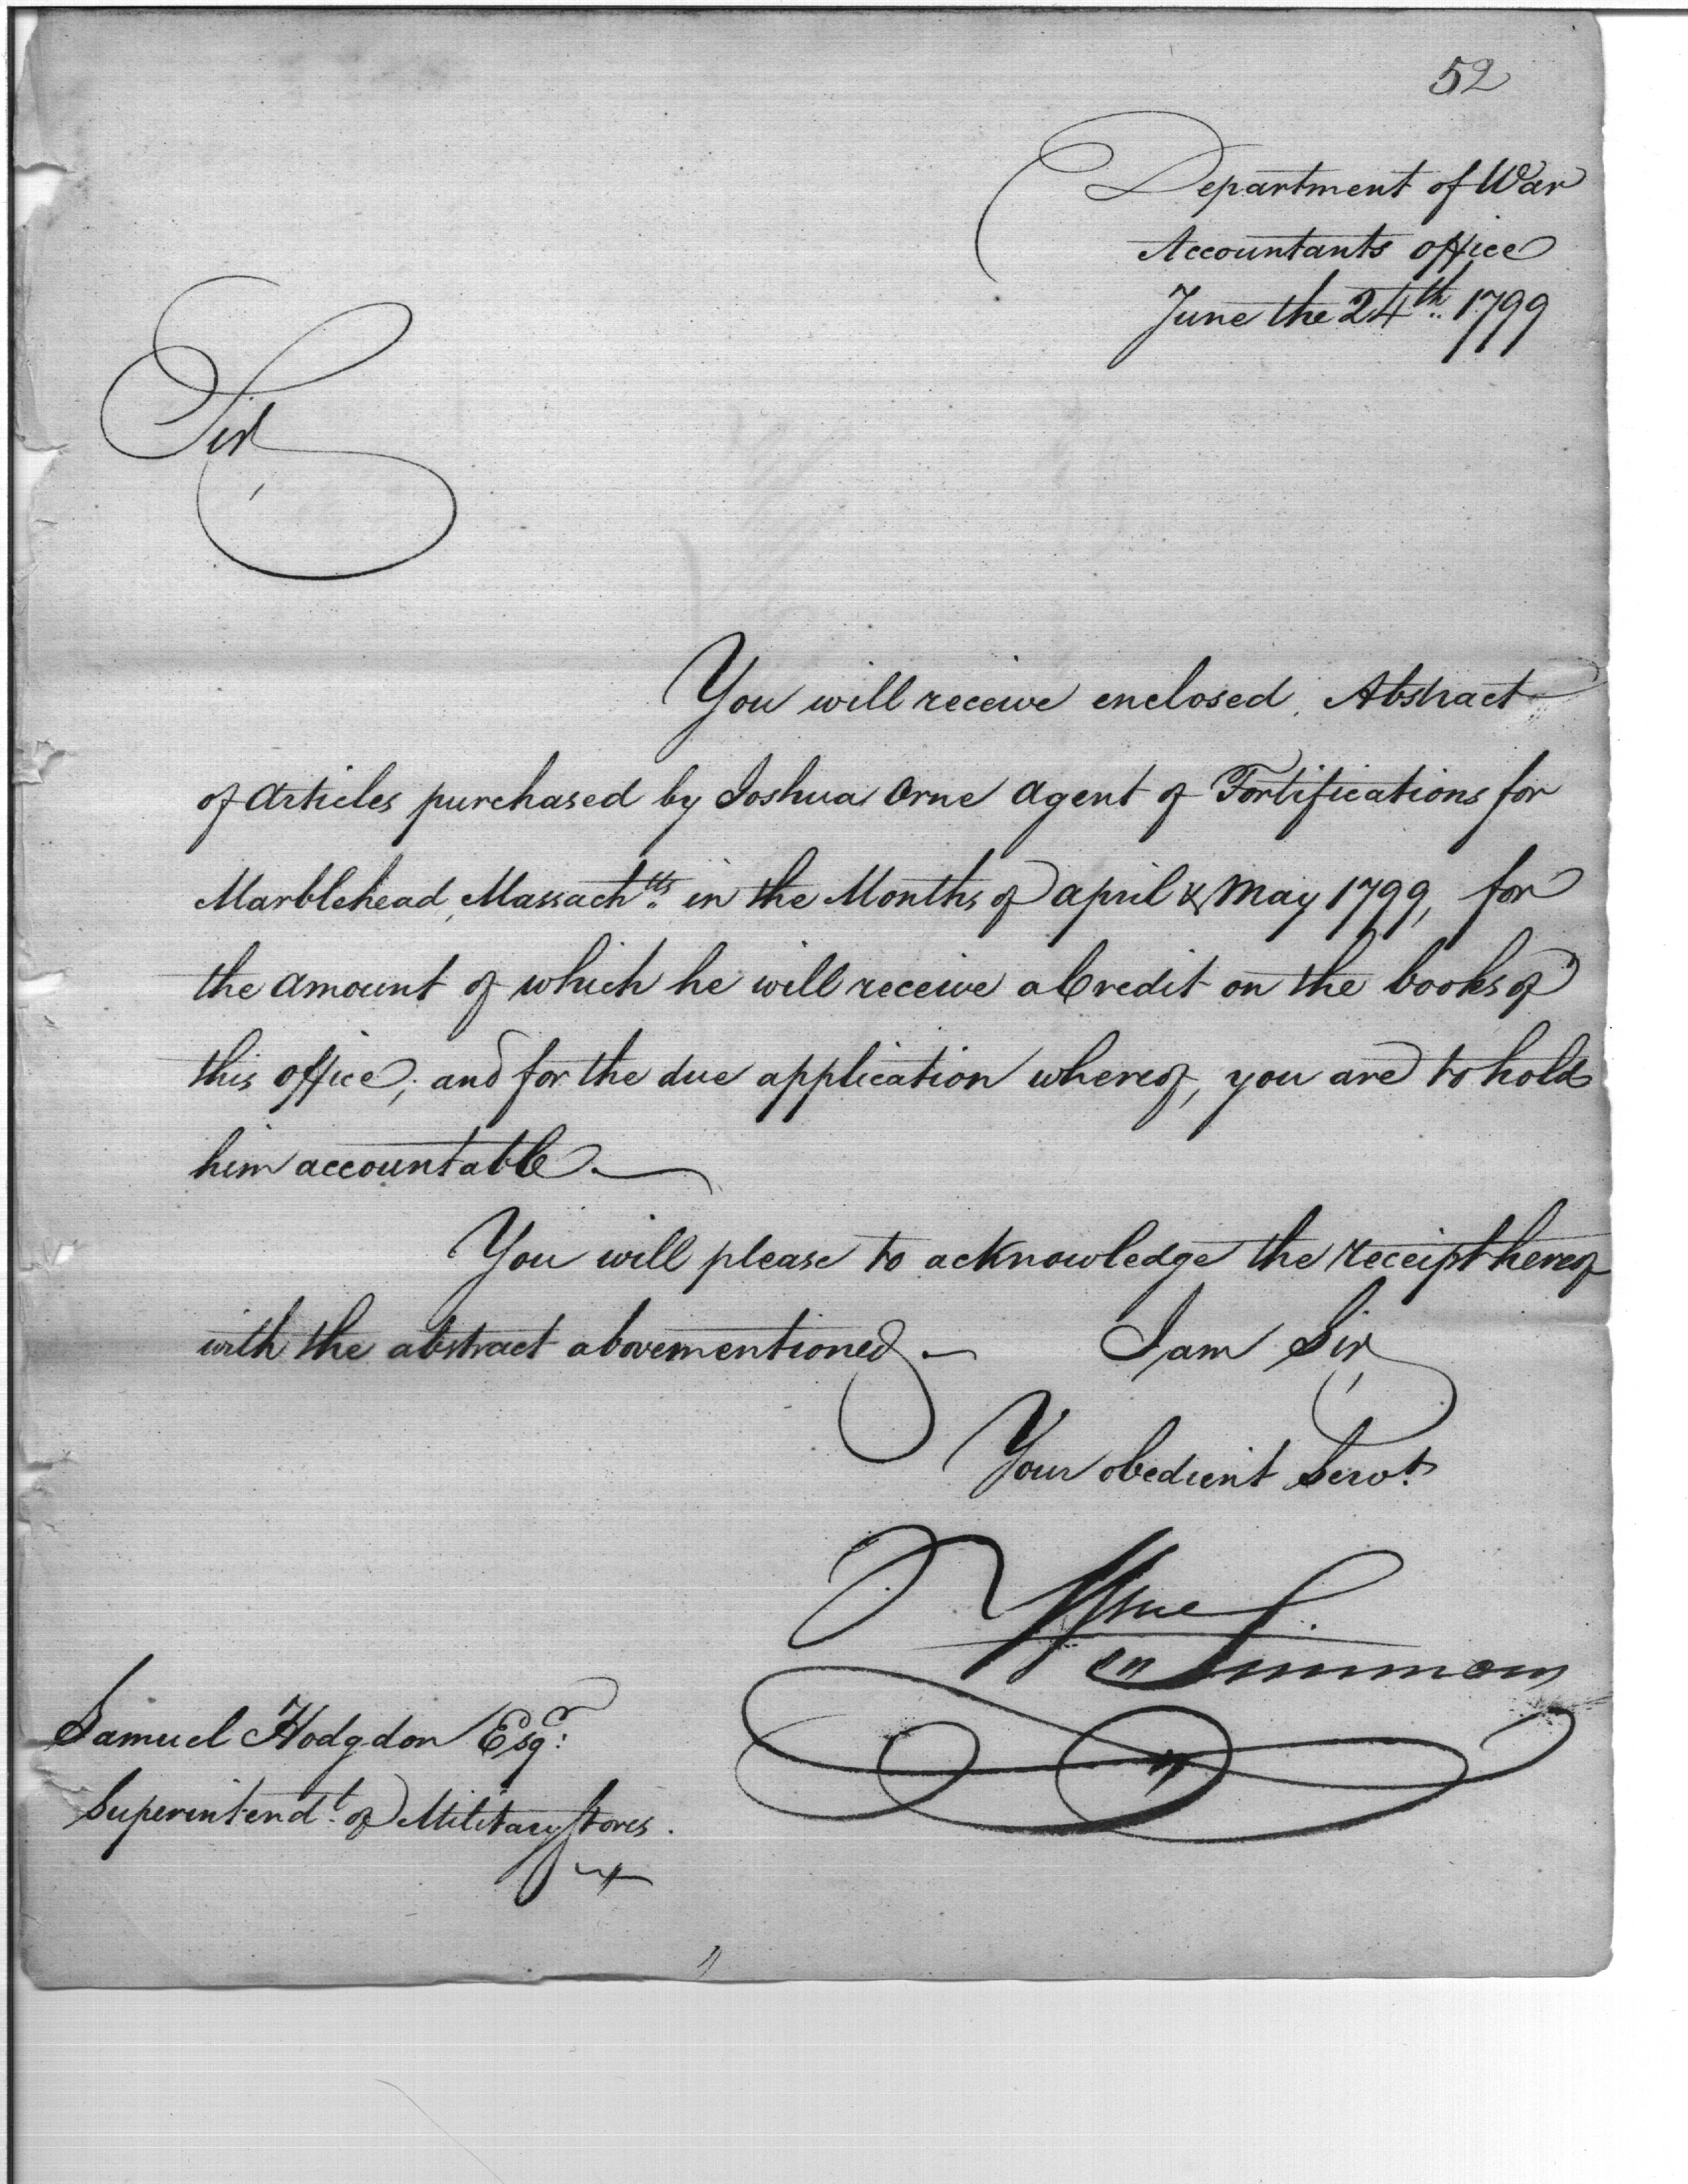 52
Department of War
Accountants office
June the 24th. 1799
Sir
You will receive enclosed, Abstract
of Articles purchased by Joshua Orne Agent of Fortifications for
Marblehead, Massachtts. in the Months of April & May 1799, for
the amount of which he will receive a Credit on the books of
this office; and for the due application whereof, you are to hold
him accountable.
You will please to acknowledge the receipt hereof
with the abstract abovementioned. I am Sir
Your obedient Servt.
Wm Simmons
Samuel Hodgdon Esqr:
Superintendt. of Military Stores.